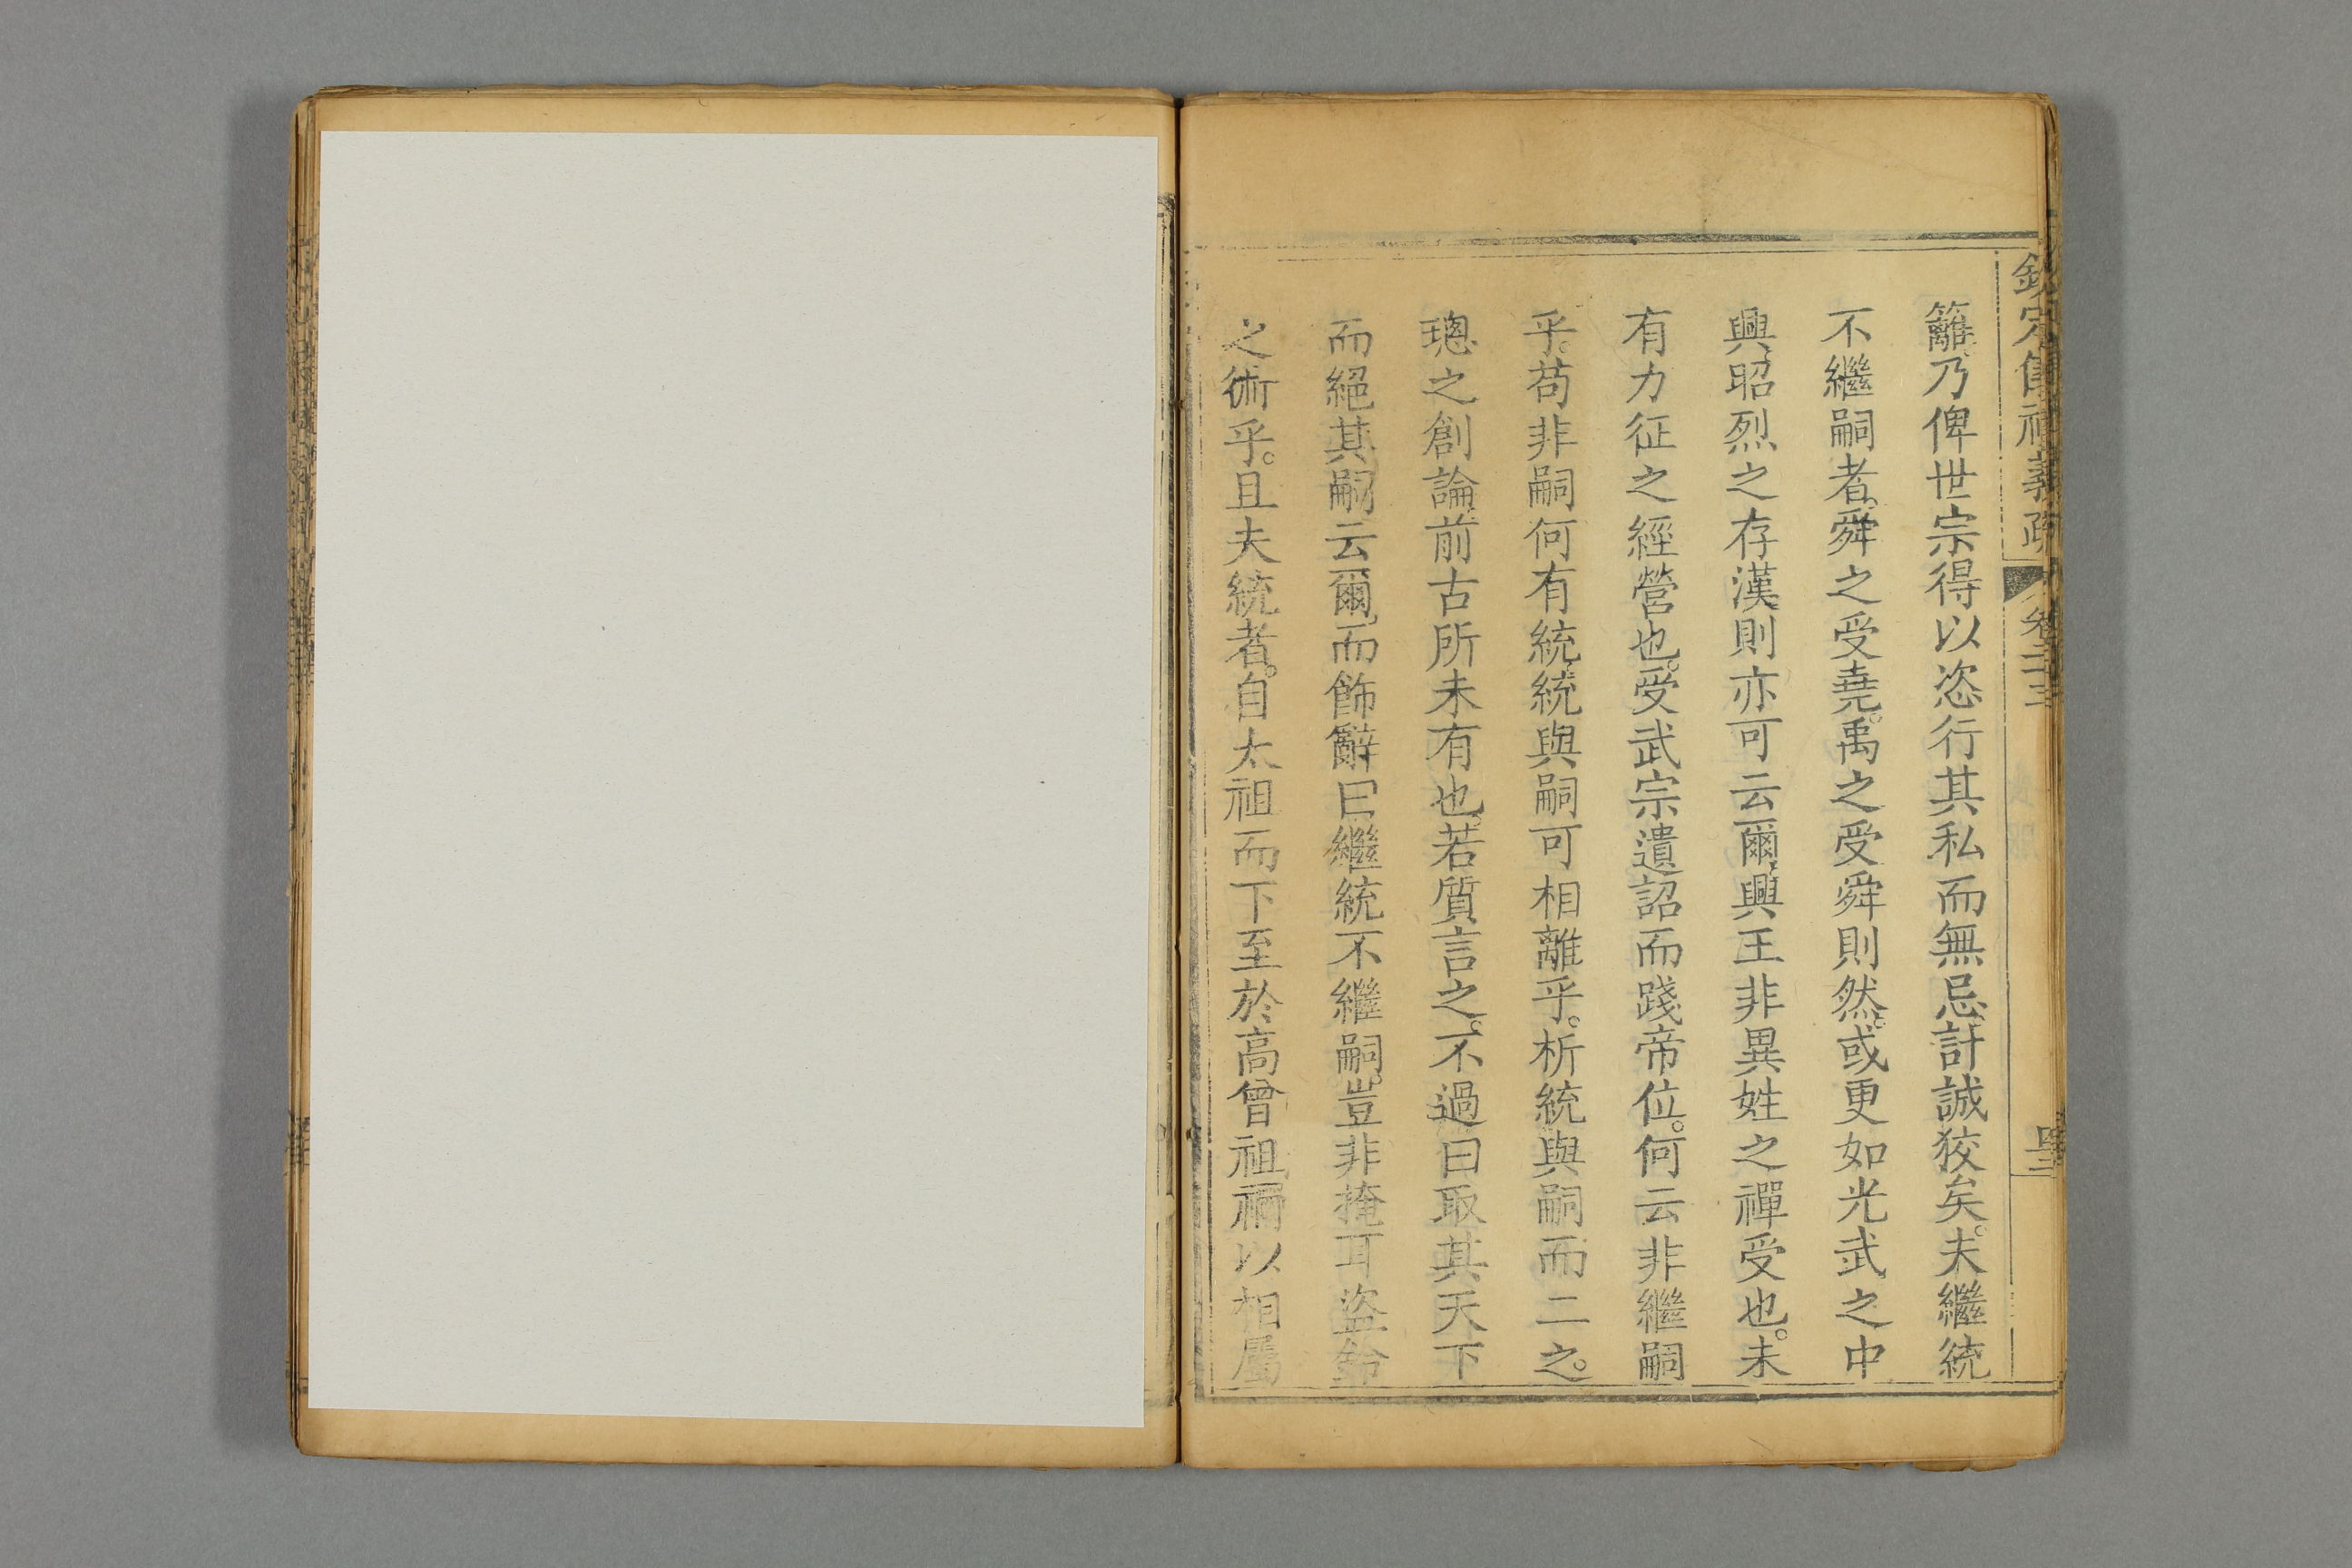 欽定儀禮義疏 卷二十三
籬乃俾世宗得以恣行其私而無忌計誠狡矣。夫繼統
不繼嗣者。舜之受堯。禹之受舜則然。或更如光武之中
興、昭烈之存漢、則亦可云爾、興王非異姓之禪受也。未
有力征之經營也。受武宗遺詔而踐帝位。何云非繼嗣
乎。苟非嗣何有統、統與嗣可相離乎。析統與嗣而二之。
璁之創論、前古所未有也。若質言之。不過曰取其天下
而絕其嗣云爾、而飾辭曰繼統不繼嗣。豈非掩耳盜鈴
之術乎。且夫統者。自太祖而下至於高曾祖禰以相屬